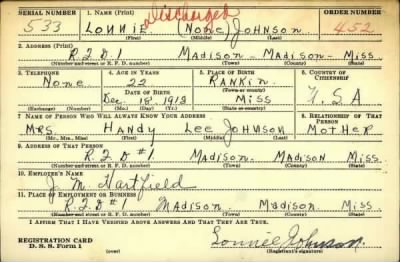 SERIAL NUMBER 1. NAME (Print) ORDER NUMBER
Discharged
533 LONNIE (None) JOHNSON 452
(First) (Middle) (Last)
2. ADDRESS (Print)
R.F.D 1 MADISON - MADISON - MISS.
(Number and street or R. F. D. number) (Town) (County) (State)
3. TELEPHONE 4. AGE IN YEARS 5. PLACE OF BIRTH 6. COUNTRY OF CITIZENSHIP
None 22 RANKIN
DATE OF BIRTH (Town or county) U.S.A
Dec 18 1918 MISS
(Exchange) (Number) (Mo.) (Day) (Yr.) (State or country)
7. NAME OF PERSON WHO WILL ALWAYS KNOW YOUR ADDRESS 8. RELATIONSHIP OF THAT PERSON
MRS. HANDY LEE JOHNSON MOTHER
(Mr., Mrs., Miss) (First) (Middle) (Last)
9. ADDRESS OF THAT PERSON
R.F.D #1 MADISON MADISON MISS.
(Number and street or R. F. D. number) (Town) (County) (State)
10. EMPLOYER'S NAME
J. M. Hartfield
11. PLACE OF EMPLOYMENT OR BUSINESS
R.F.D #1 MADISON MADISON MISS.
(Number and street or R. F. D. number) (Town) (County) (State)
I AFFIRM THAT I HAVE VERIFIED ABOVE ANSWERS AND THAT THEY ARE TRUE.
REGISTRATION CARD
D. S. S. Form 1 (over) Lonnie Johnson
(Registrant's signature)